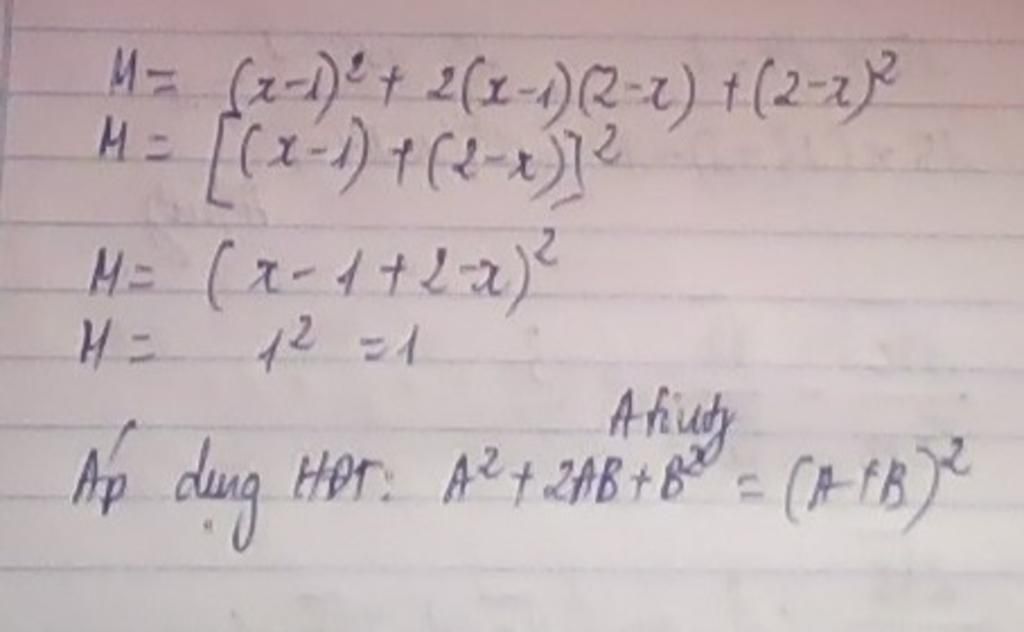 M = (x-1)² + 2(x-1)(2-x) + (2-x)²
M = [(x-1) + (2-x)]²
M = (x - 1 + 2 - x)²
M = 1² = 1
Áp dụng HĐT: A² + 2AB + B² = (A+B)²